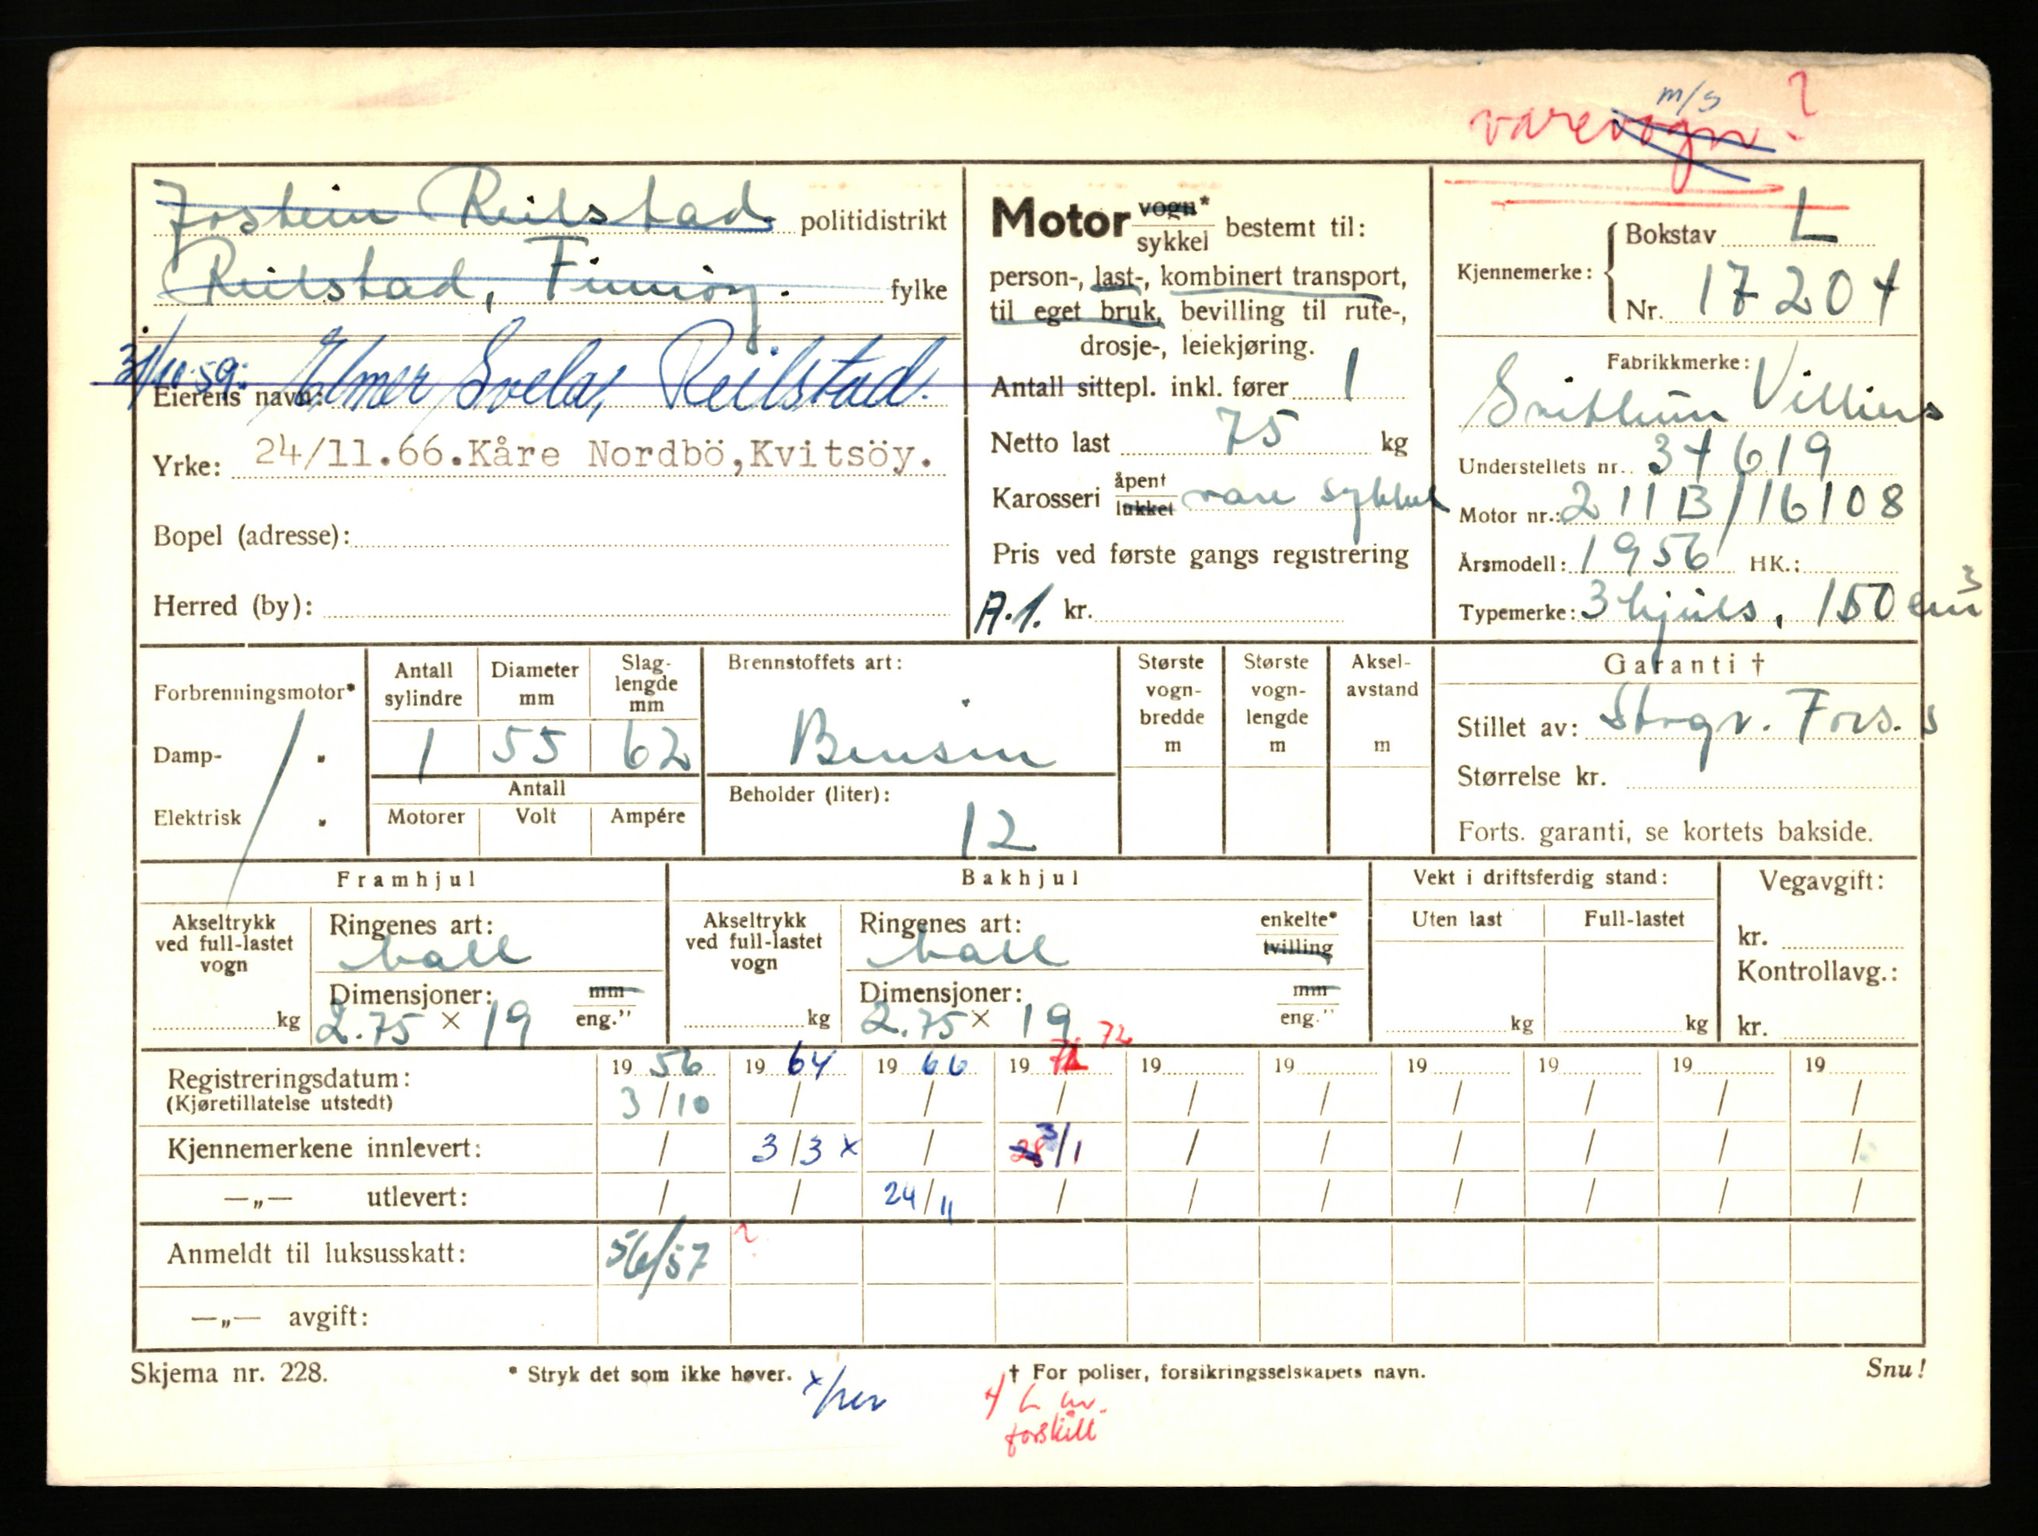 m/s
varevogn ?
Jostein Reilstad politidistrikt
Reilstad, Finnöy. fylke
Eierens navn: Elmer Svela, Reilstad.
Yrke: 24/11.66. Kåre Nordbö, Kvitsöy.
Bopel (adresse):
Herred (by):
Motor vogn* sykkel bestemt til:
person-, last-, kombinert transport,
til eget bruk, bevilling til rute-,
drosje-, leiekjøring.
Antall sittepl. inkl. fører 1
Netto last 75 kg
Karosseri åpent lukket vare sykkel
Pris ved første gangs registrering
A.1. kr.
Kjennemerke: Bokstav L
Nr. 17204
Fabrikkmerke:
Svithun Villiers
Understellets nr. 34619
Motor nr.: 211B/16108
Årsmodell: 1956 HK.:
Typemerke: 3 hjuls, 150 cm3
Forbrenningsmotor*
Damp- "
Elektrisk "
Antall sylindre 1
Diameter mm 55
Slaglengde mm 62
Antall
Motorer Volt Ampére
Brennstoffets art:
Bensin
Beholder (liter):
12
Største vognbredde m
Største vognlengde m
Akselavstand m
Garanti †
Stillet av: Storgr. Fors. s
Størrelse kr.
Forts. garanti, se kortets bakside.
Framhjul
Akseltrykk ved full-lastet vogn kg
Ringenes art: ball
Dimensjoner: mm eng."
2.75 x 19
Bakhjul
Akseltrykk ved full-lastet vogn kg
Ringenes art: ball enkelte* tvilling
Dimensjoner: mm eng."
2.75 x 19
Vekt i driftsferdig stand:
Uten last Full-lastet
kg kg
Vegavgift:
kr.
Kontrollavg.:
kr.
72
Registreringsdatum: 19 56 19 64 19 66 19 19 19 19 19 19 19
(Kjøretillatelse utstedt) 3/10 / / / / / / / / /
Kjennemerkene innlevert: / 3/3 x / 3/1 / / / / / /
—„— utlevert: / / 24/11 / / / / / / /
Anmeldt til luksusskatt: 56/57 ?
—„— avgift:
Skjema nr. 228. * Stryk det som ikke høver. † For poliser, forsikringsselskapets navn. Snu!
x/
forskilt